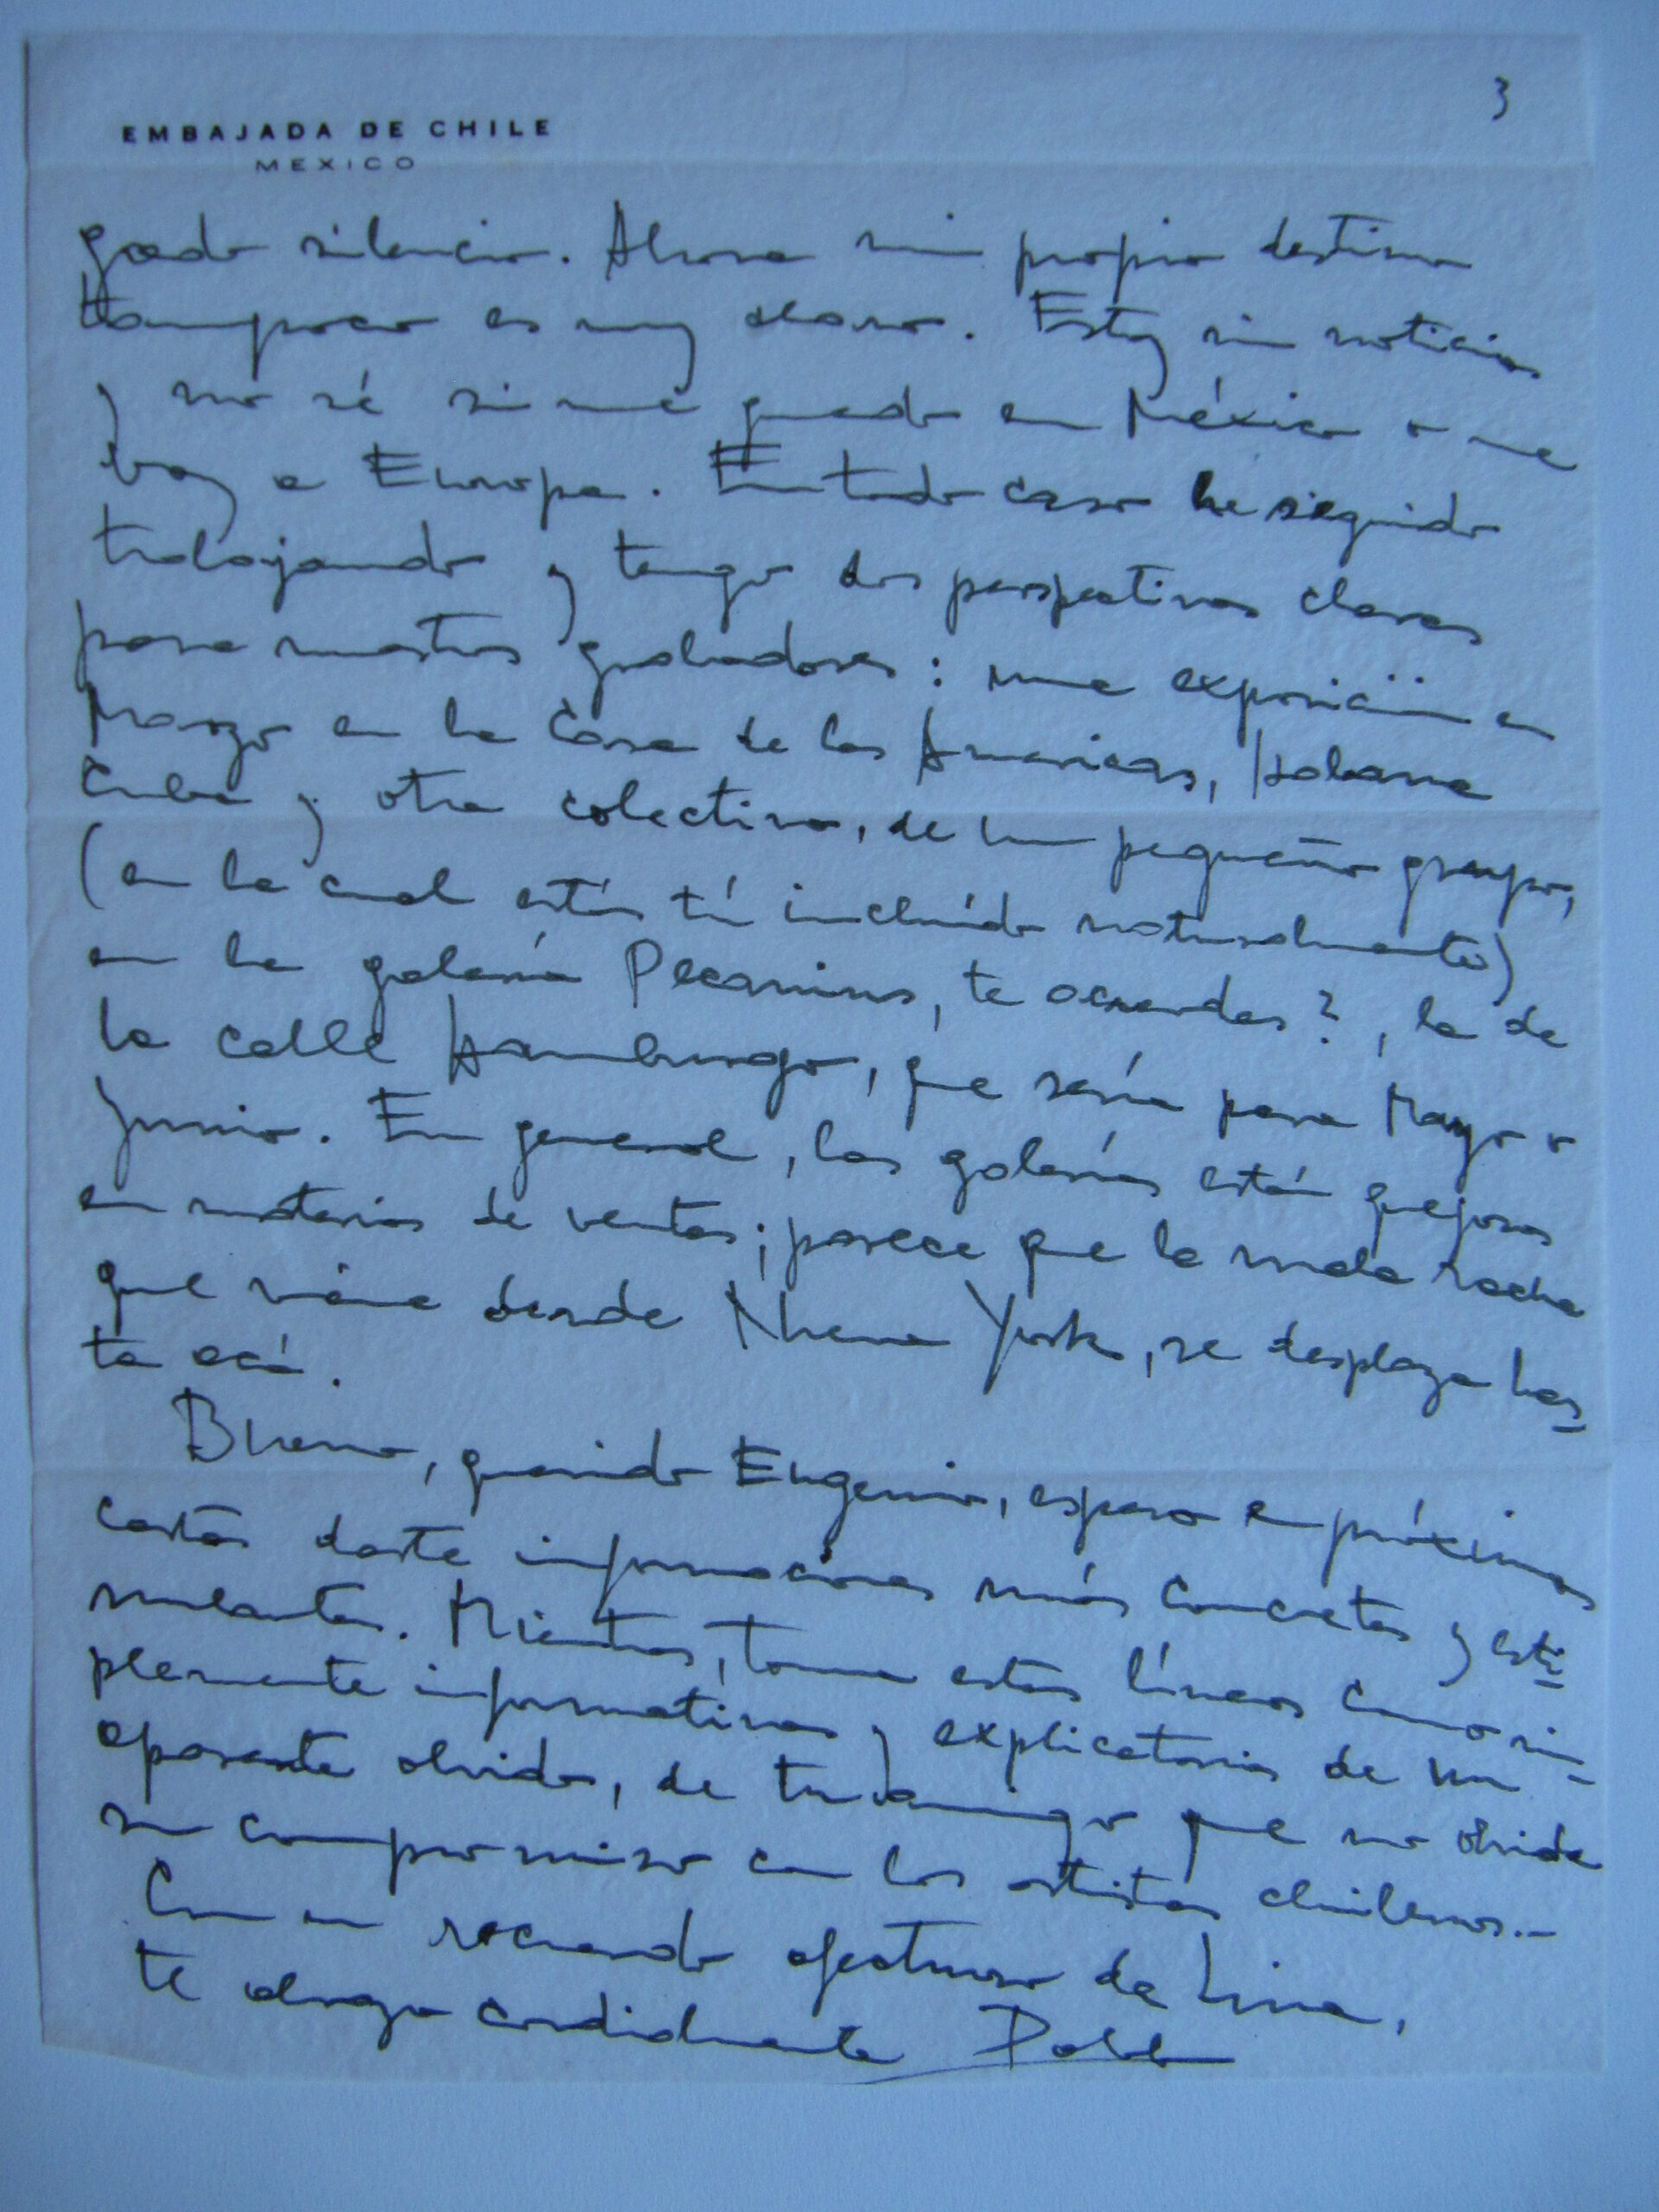 3
EMBAJADA DE CHILE
MEXICO
gado silencio. Ahora mi propio destino
tampoco es muy claro. Estoy sin noticias
y no sé si me quedo en México o me
voy a Europa. En todo caso he seguido
trabajando y tengo dos perspectivas claras
para nuestros grabadores: una exposición en
Marzo en la Casa de las Americas, Habana
Cuba y otra colectiva, de un pequeño grupo,
(en la cual estás tú incluído naturalmente)
en la galería Pecanins, te acuerdas?, la de
la calle Hamburgo, que sería para Mayo o
Junio. En general, las galerías están quejosas
en materias de ventas; parece que la mala racha
que viene desde Nueva York, se desplaza has
ta acá.
Bueno, querido Eugenio, espero en próximas
cartas darte informaciones más concretas y esti
mulantes. Mientras, toma estas líneas como sim
plemente informativas y explicatorias de un
aparente olvido, de tu amigo que no olvida
su compromiso con los artistas chilenos.-
Con un recuerdo afectuoso de Lina,
te abraza cordialmente